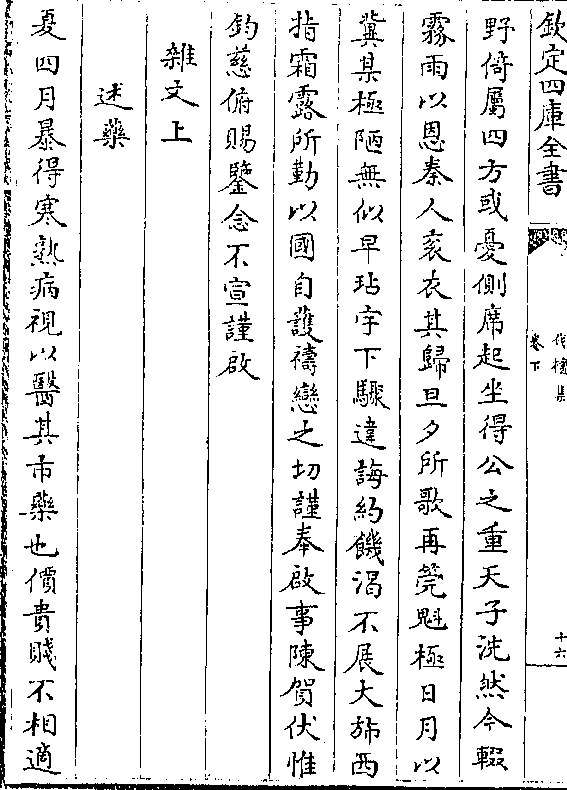 欽定四庫全書
卷下
十六
野倚屬四方或憂側席起坐得公之重天子洸然今輟
霧雨以恩秦人衮衣其歸旦夕所歌再筦魁極日月以
冀某極陋無似早玷宇下驟違誨約饑渴不展大斾西
指霜露所勤以國自護禱戀之切謹奉啟事陳賀伏惟
鈞慈俯賜鑒念不宣謹啟
雜文上
述藥
夏四月暴得寒熱病視以醫其市藥也價貴賤不相適